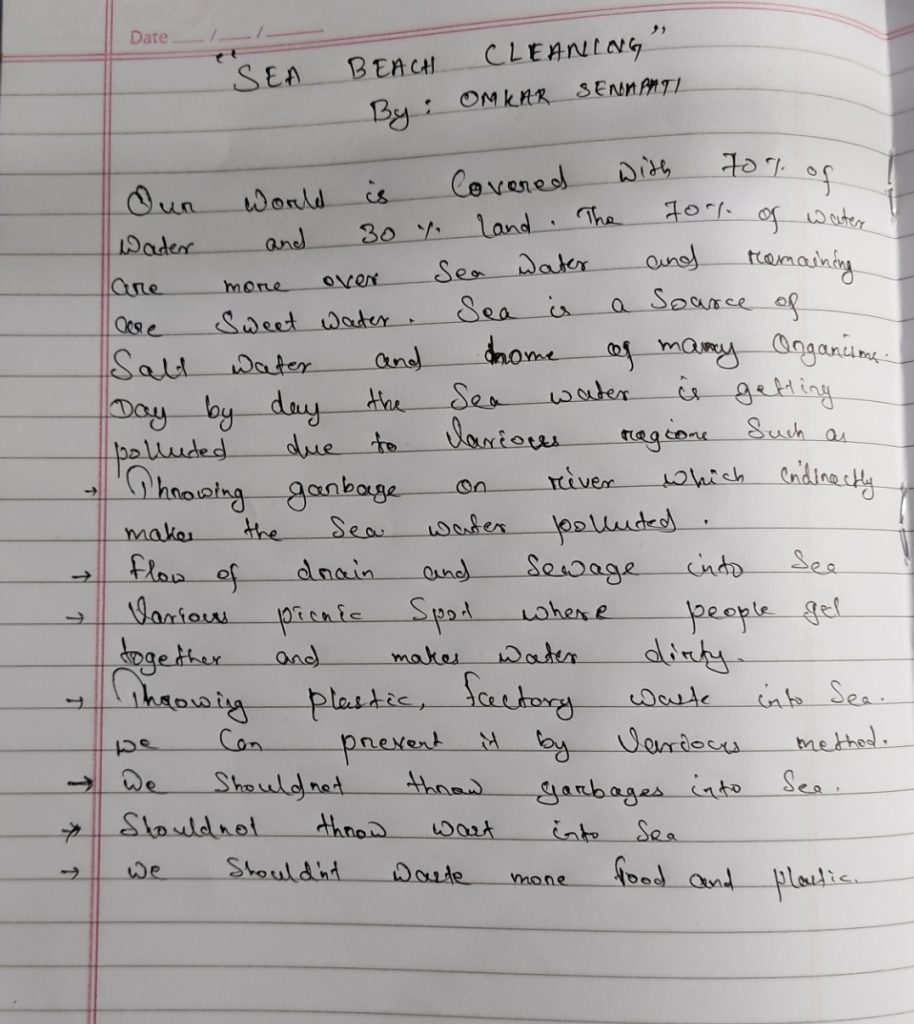 Date __/__/____
"SEA BEACH CLEANING"
By: OMKAR SENAPATI
Our World is Covered With 70% of
Water and 30% land. The 70% of water
are more over Sea Water and remaining
are Sweet Water. Sea is a Source of
Salt Water and home of many Organisms.
Day by day the Sea water is getting
polluted due to Various regions Such as
→ Throwing garbage on river which indirectly
makes the Sea water polluted.
→ flow of drain and Sewage into Sea
→ Various picnic Spot where people get
together and makes Water dirty.
→ Throwing plastic, factory waste into Sea.
we Can prevent it by Various method.
→ We Shouldnot throw garbages into Sea.
→ Shouldnot throw wast into Sea
→ we Should'nt Waste more food and plastic.